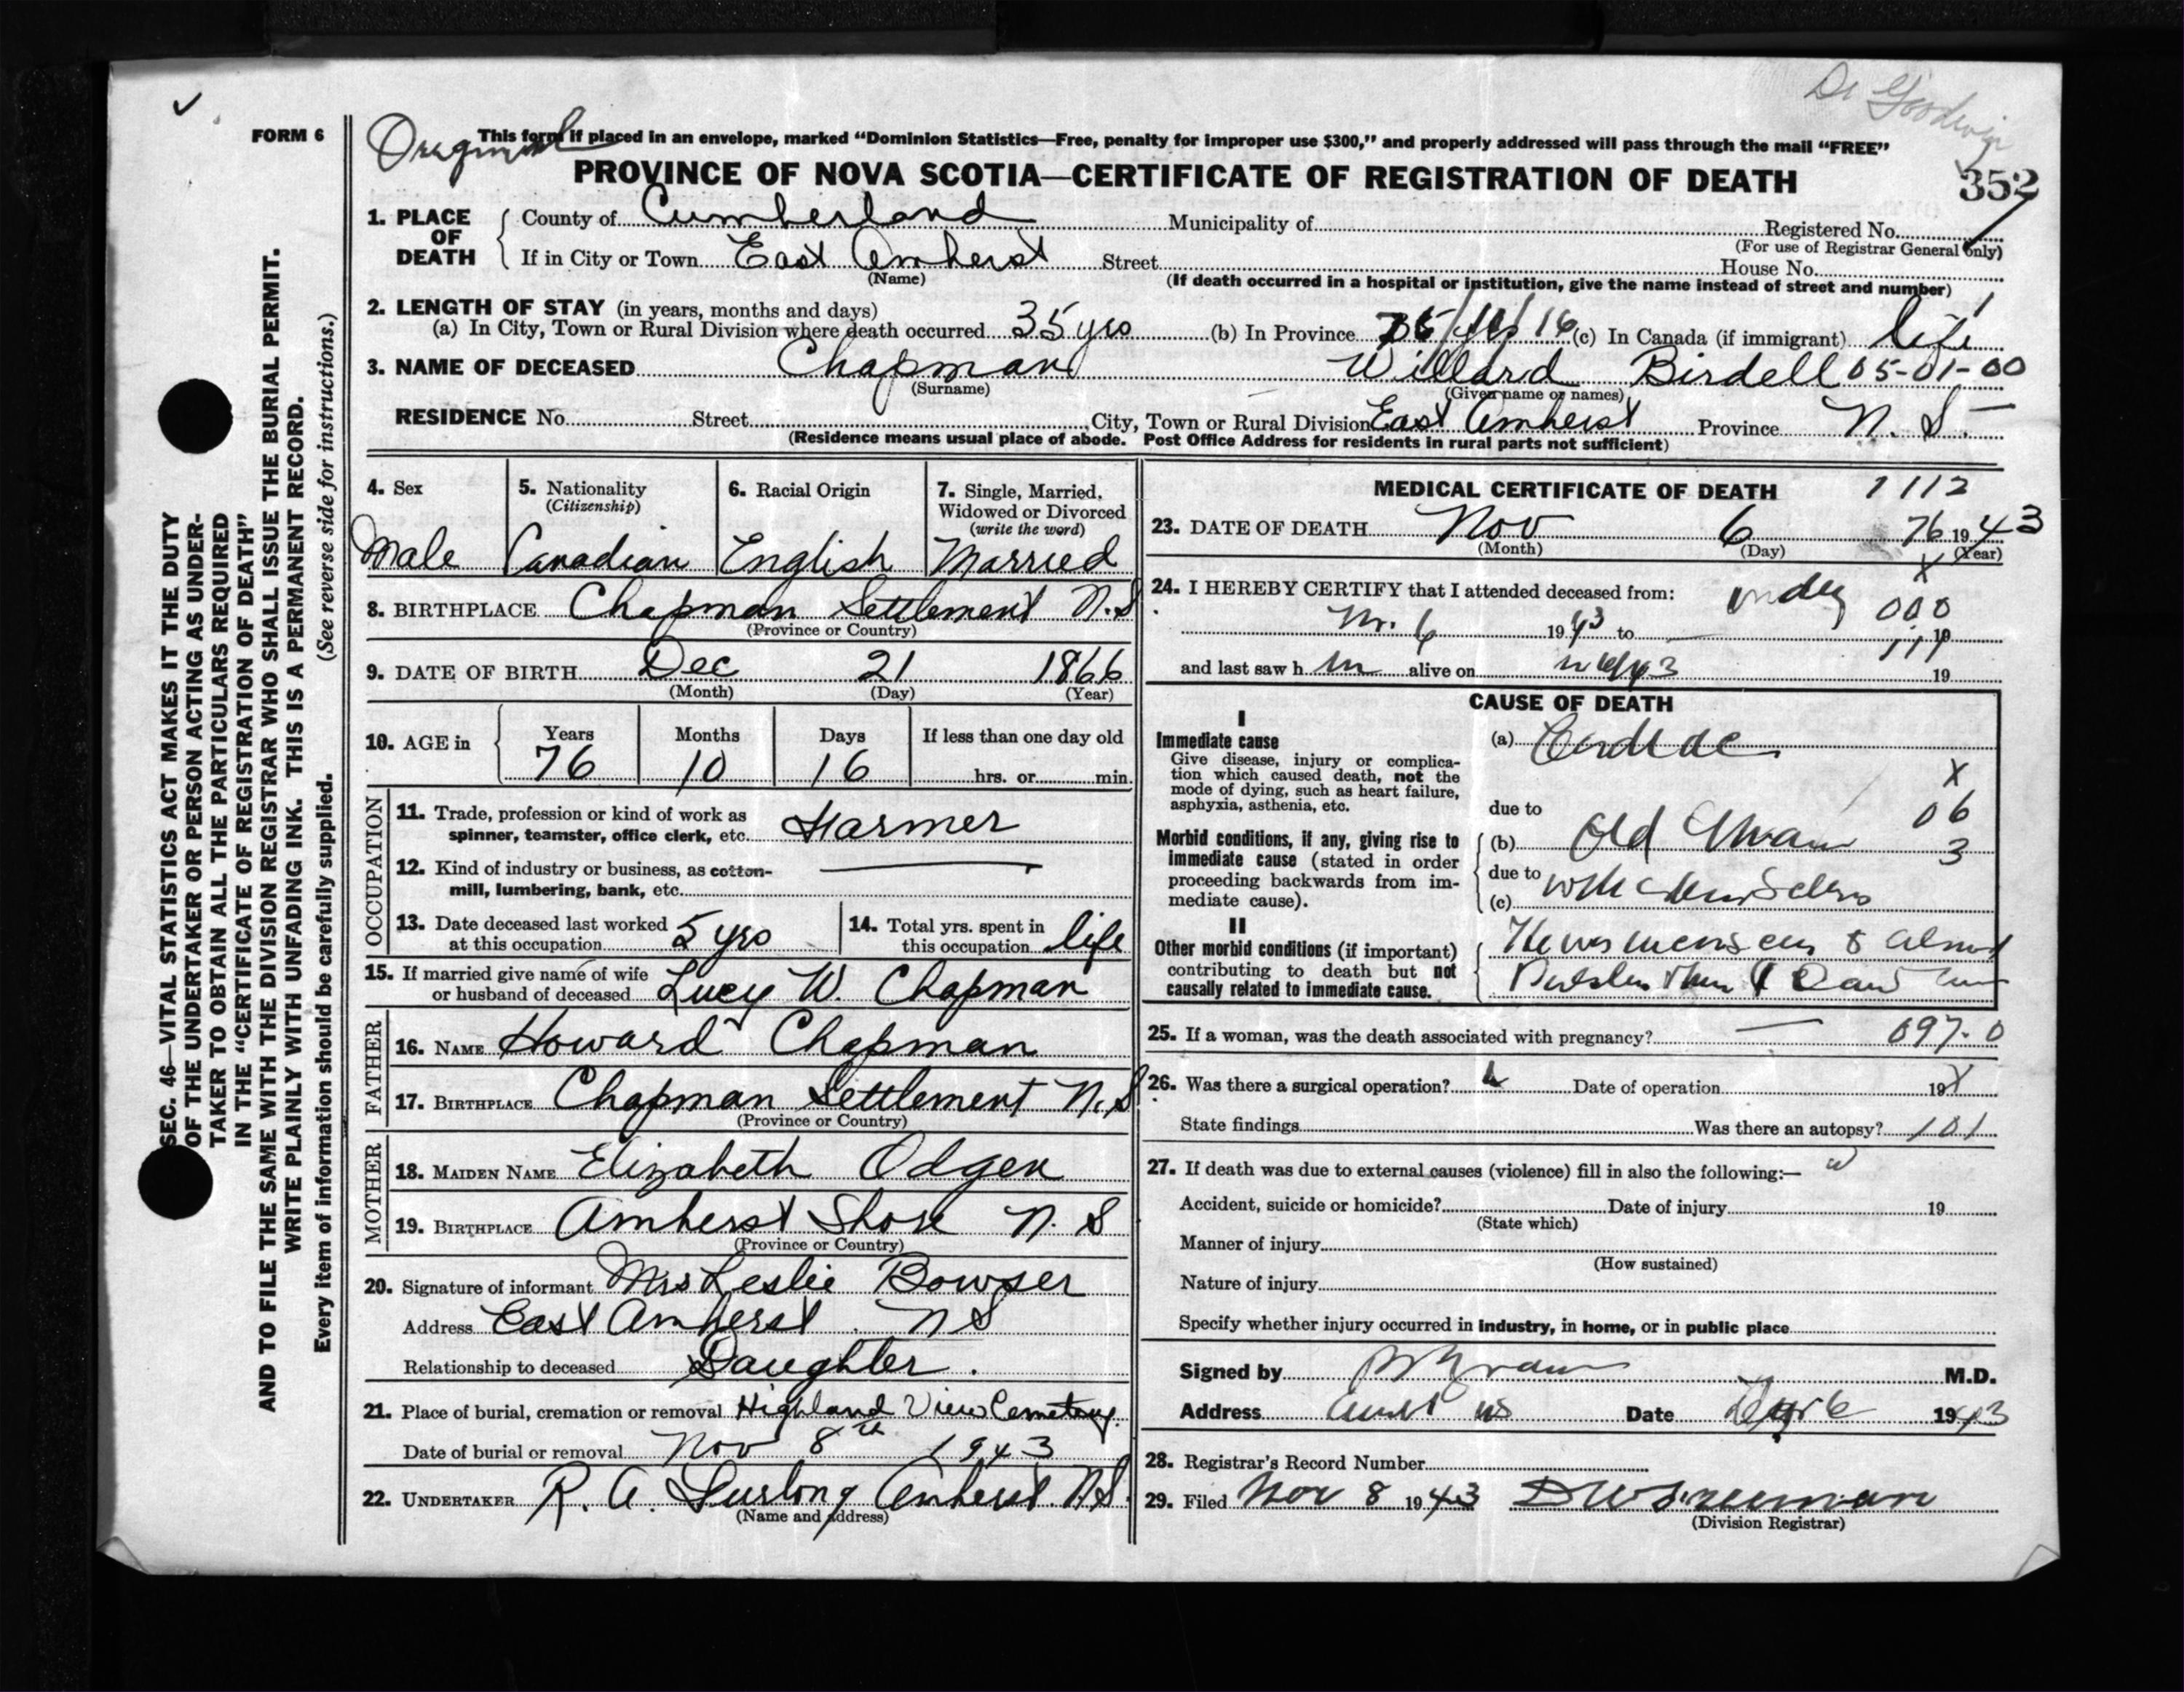 Dr Goodwin
FORM 6
Original
This form if placed in an envelope, marked “Dominion Statistics—Free, penalty for improper use $300,” and properly addressed will pass through the mail “FREE”
PROVINCE OF NOVA SCOTIA—CERTIFICATE OF REGISTRATION OF DEATH
352
1. PLACE OF DEATH
County of Cumberland Municipality of Registered No.
(For use of Registrar General only)
If in City or Town East Amherst Street House No.
(Name)
(If death occurred in a hospital or institution, give the name instead of street and number)
2. LENGTH OF STAY (in years, months and days)
(a) In City, Town or Rural Division where death occurred 35 yrs (b) In Province (c) In Canada (if immigrant) life
3. NAME OF DECEASED Chapman Willard Birdell 05-01-00
(Surname) (Given name or names)
RESIDENCE No. Street City, Town or Rural Division East Amherst Province N. S.
(Residence means usual place of abode. Post Office Address for residents in rural parts not sufficient)
4. Sex
Male
5. Nationality
(Citizenship)
Canadian
6. Racial Origin
English
7. Single, Married, Widowed or Divorced
(write the word)
Married
8. BIRTHPLACE Chapman Settlement N.S
(Province or Country)
9. DATE OF BIRTH Dec 21 1866
(Month) (Day) (Year)
10. AGE in
Years Months Days If less than one day old
76 10 16 hrs. or min.
OCCUPATION
11. Trade, profession or kind of work as
spinner, teamster, office clerk, etc. Farmer
12. Kind of industry or business, as cotton-
mill, lumbering, bank, etc.
13. Date deceased last worked
at this occupation 5 yrs
14. Total yrs. spent in
this occupation life
15. If married give name of wife
or husband of deceased Lucy W. Chapman
FATHER
16. NAME Howard Chapman
17. BIRTHPLACE Chapman Settlement N.S
(Province or Country)
MOTHER
18. MAIDEN NAME Elizabeth Odgen
19. BIRTHPLACE Amherst Shore N. S
(Province or Country)
20. Signature of informant Mrs Leslie Bowser
Address East Amherst. N S
Relationship to deceased Daughter.
21. Place of burial, cremation or removal Highland View Cemetery.
Date of burial or removal Nov 8th 1943
22. UNDERTAKER R. A. Furlong Amherst N.S.
(Name and address)
MEDICAL CERTIFICATE OF DEATH
1112
23. DATE OF DEATH Nov 6 76 1943
(Month) (Day) (Year)
24. I HEREBY CERTIFY that I attended deceased from:
000
6 1943 to 19
and last saw h alive on 19
CAUSE OF DEATH
I
Immediate cause
Give disease, injury or complica-
tion which caused death, not the
mode of dying, such as heart failure,
asphyxia, asthenia, etc.
(a) Cardiac
X
06
3
due to
Morbid conditions, if any, giving rise to
immediate cause (stated in order
proceeding backwards from im-
mediate cause).
(b) Old
due to
(c)
II
Other morbid conditions (if important)
contributing to death but not
causally related to immediate cause.
25. If a woman, was the death associated with pregnancy? — 097-0
26. Was there a surgical operation? Date of operation 19
State findings Was there an autopsy?
27. If death was due to external causes (violence) fill in also the following:—
Accident, suicide or homicide? Date of injury 19
(State which)
Manner of injury
(How sustained)
Nature of injury
Specify whether injury occurred in industry, in home, or in public place
Signed by M.D.
Address Date 6 1943
28. Registrar's Record Number
29. Filed Nov 8 1943
(Division Registrar)
SEC. 46—VITAL STATISTICS ACT MAKES IT THE DUTY
OF THE UNDERTAKER OR PERSON ACTING AS UNDER-
TAKER TO OBTAIN ALL THE PARTICULARS REQUIRED
IN THE “CERTIFICATE OF REGISTRATION OF DEATH”
AND TO FILE THE SAME WITH THE DIVISION REGISTRAR WHO SHALL ISSUE THE BURIAL PERMIT.
WRITE PLAINLY WITH UNFADING INK. THIS IS A PERMANENT RECORD.
Every item of information should be carefully supplied. (See reverse side for instructions.)